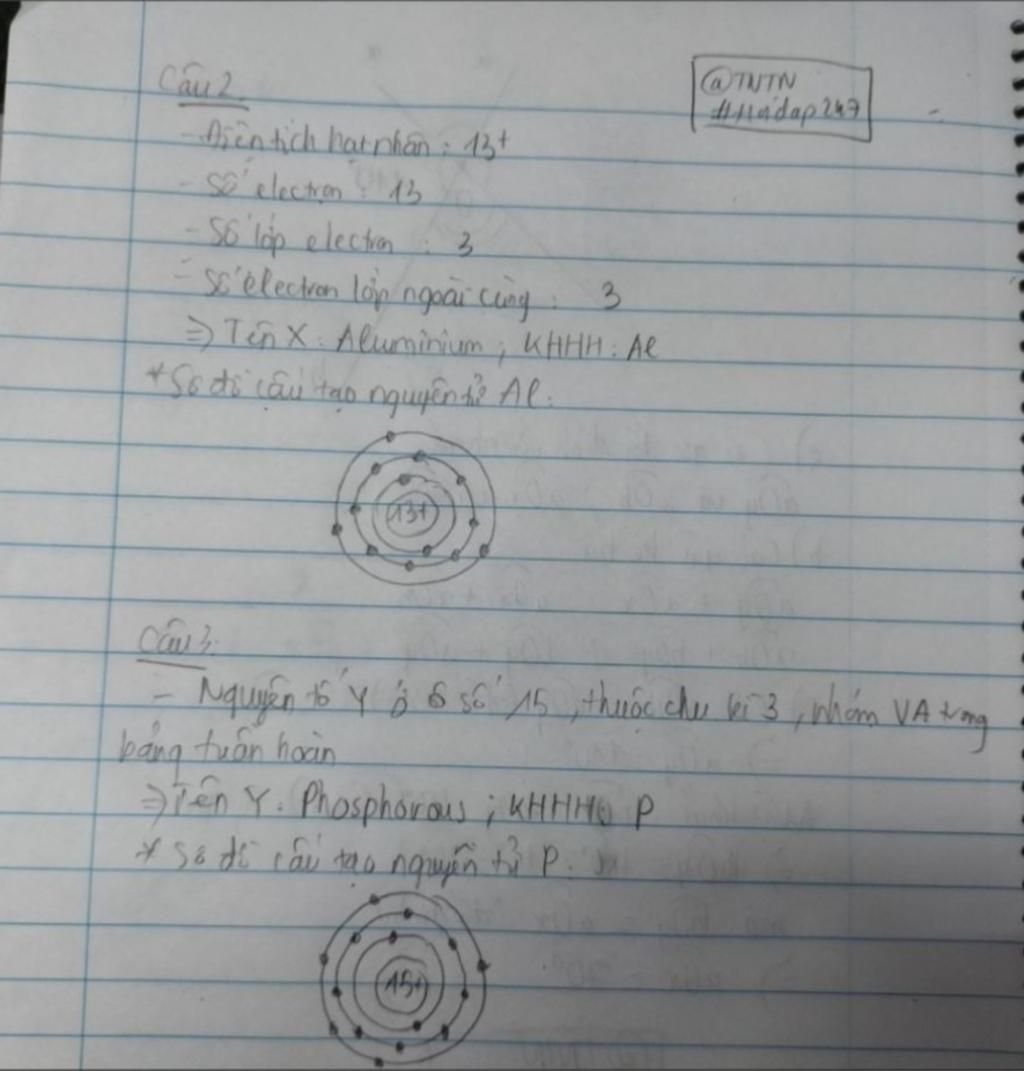 Câu 2.
@TNTN
#Hoidap247
- Điện tích hạt nhân : 13+
- Số electron : 13
- Số lớp electron : 3
- Số electron lớp ngoài cùng : 3
=> Tên X : Aluminium ; KHHH : Al
* Sơ đồ cấu tạo nguyên tử Al :
13+
Câu 3.
- Nguyên tố Y ở ô số 15 , thuộc chu kì 3 , nhóm VA trong
bảng tuần hoàn
=> Tên Y : Phosphorous ; KHHH : P
* Sơ đồ cấu tạo nguyên tử P :
15+